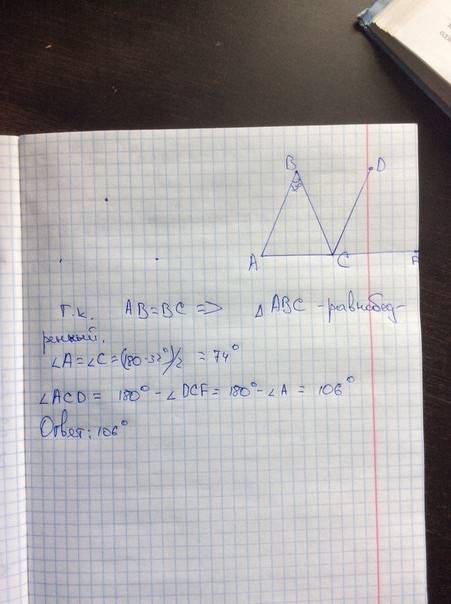 B
D
A
C
F
Т.к. AB=BC => △ ABC - равнобед-
ренный.
∠A=∠C=(180-32°)/2 = 74°
∠ACD = 180° - ∠DCF = 180° - ∠A = 106°
Ответ: 106°